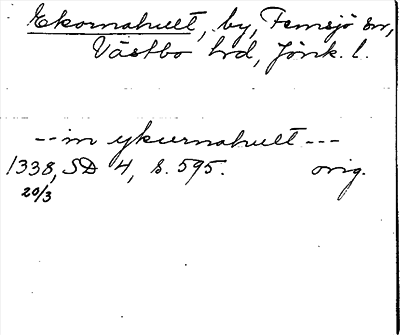 Ekornahult, by, Femsjö sn,
Västbo hrd, Jönk. l.
--- in ykurnahult ---
1338, SD 4, s. 595. orig.
20/3